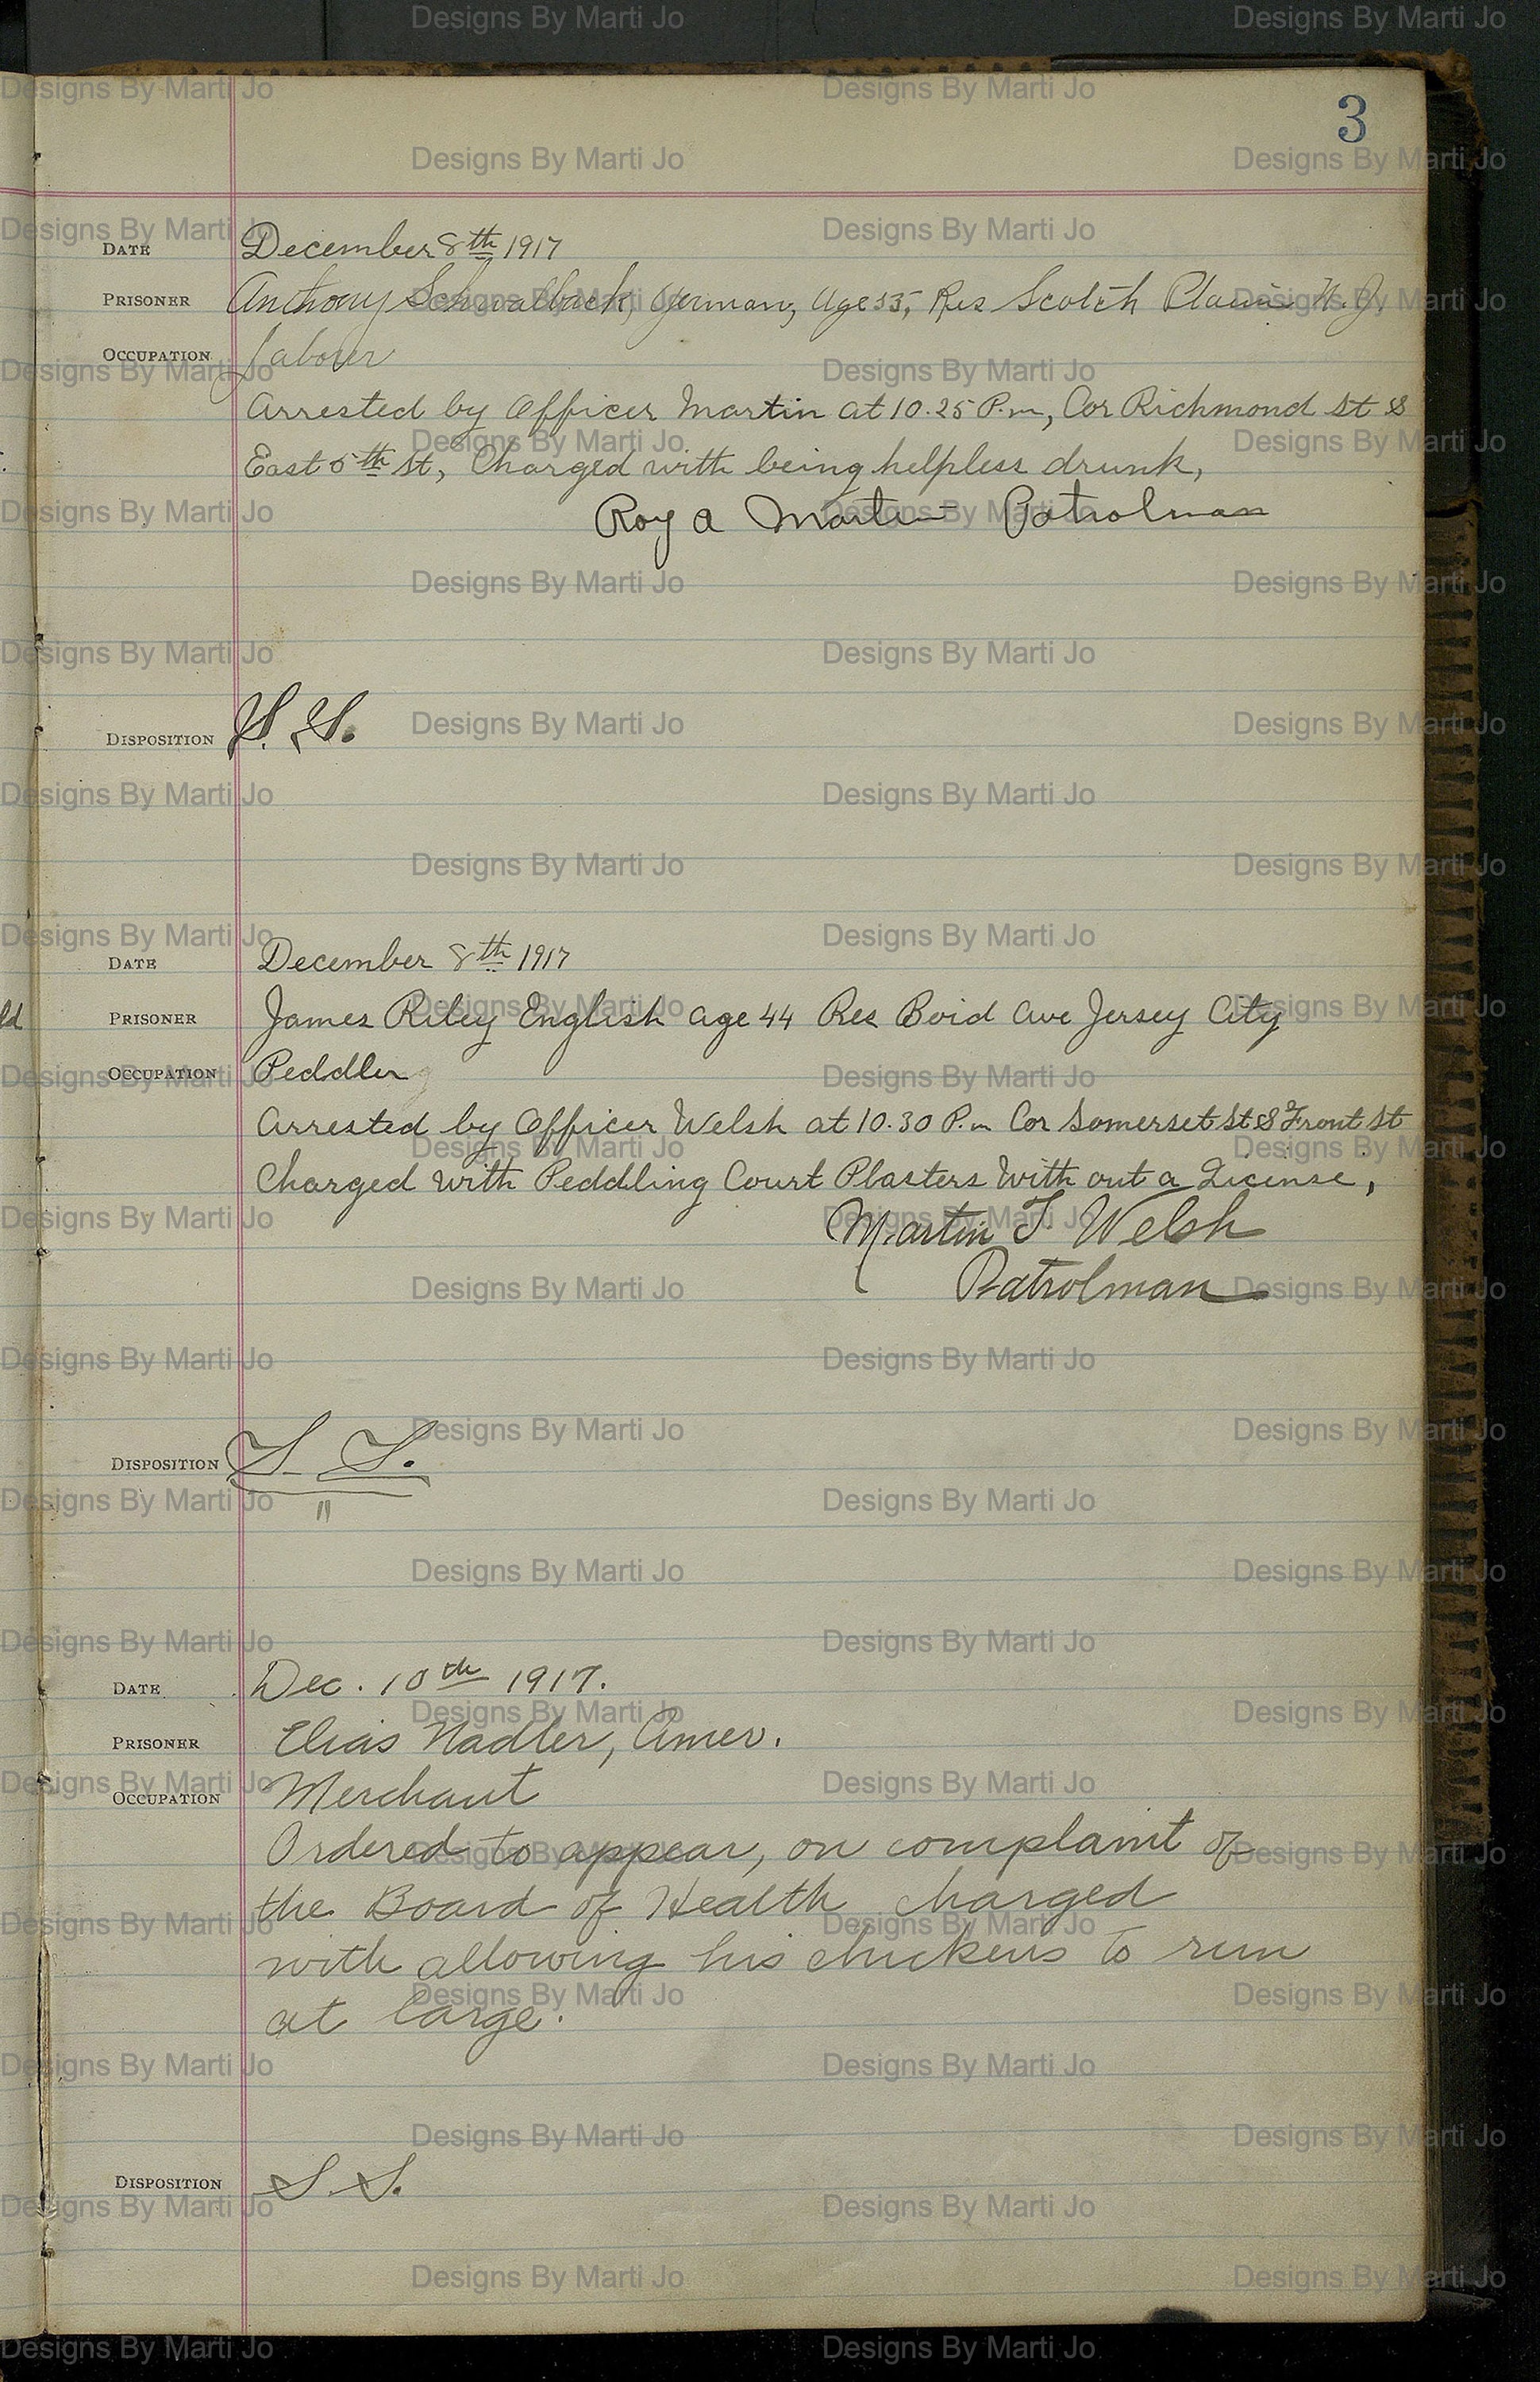 3
DATE December 8th 1917
PRISONER Anthony Schwalback, German, Age 35, Res Scotch Plains N.J.
OCCUPATION Laborer
Arrested by Officer Martin at 10.25 P.m, Cor Richmond St &
East 5th St, Charged with being helpless drunk,
Roy A Martin Patrolman
DISPOSITION S. S.
DATE December 8th 1917
ld
PRISONER James Riley English age 44 Res Boid Ave Jersey City
OCCUPATION Peddler
Arrested by Officer Welsh at 10.30 P.m Cor Somerset St & Front St
Charged with Peddling Court Plasters With out a License,
Martin T. Welsh
Patrolman
DISPOSITION S. S.
DATE Dec. 10th 1917.
PRISONER Elias Nadler, Amer.
OCCUPATION Merchant
Ordered to appear, on complaint of
the Board of Health charged
with allowing his chickens to run
at large.
DISPOSITION S. S.
Designs By Marti Jo